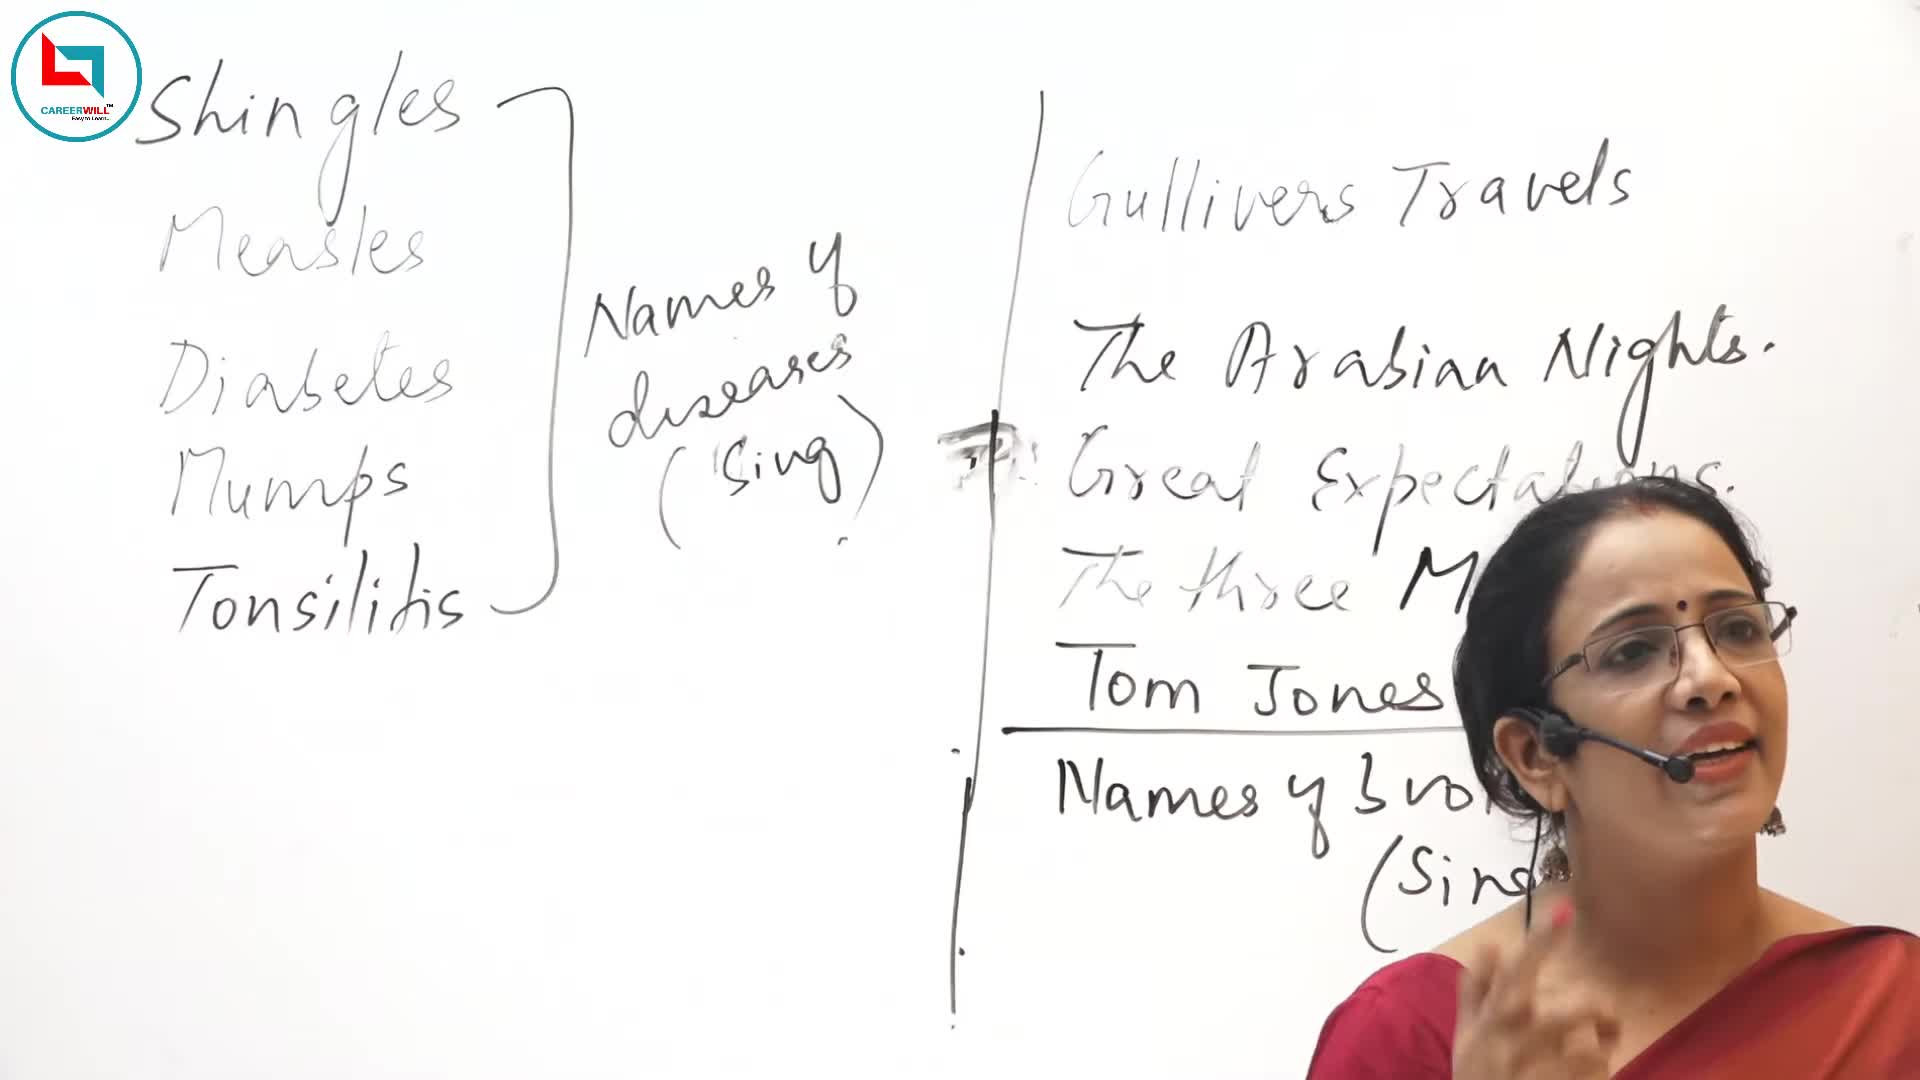 CAREERWILL™
Easy to Learn..
Shingles
Measles
Diabetes
Mumps
Tonsilitis
Names of
diseases
(Sing)
Gullivers Travels
The Arabian Nights.
Great Expectations.
The three
Tom Jones
Names of